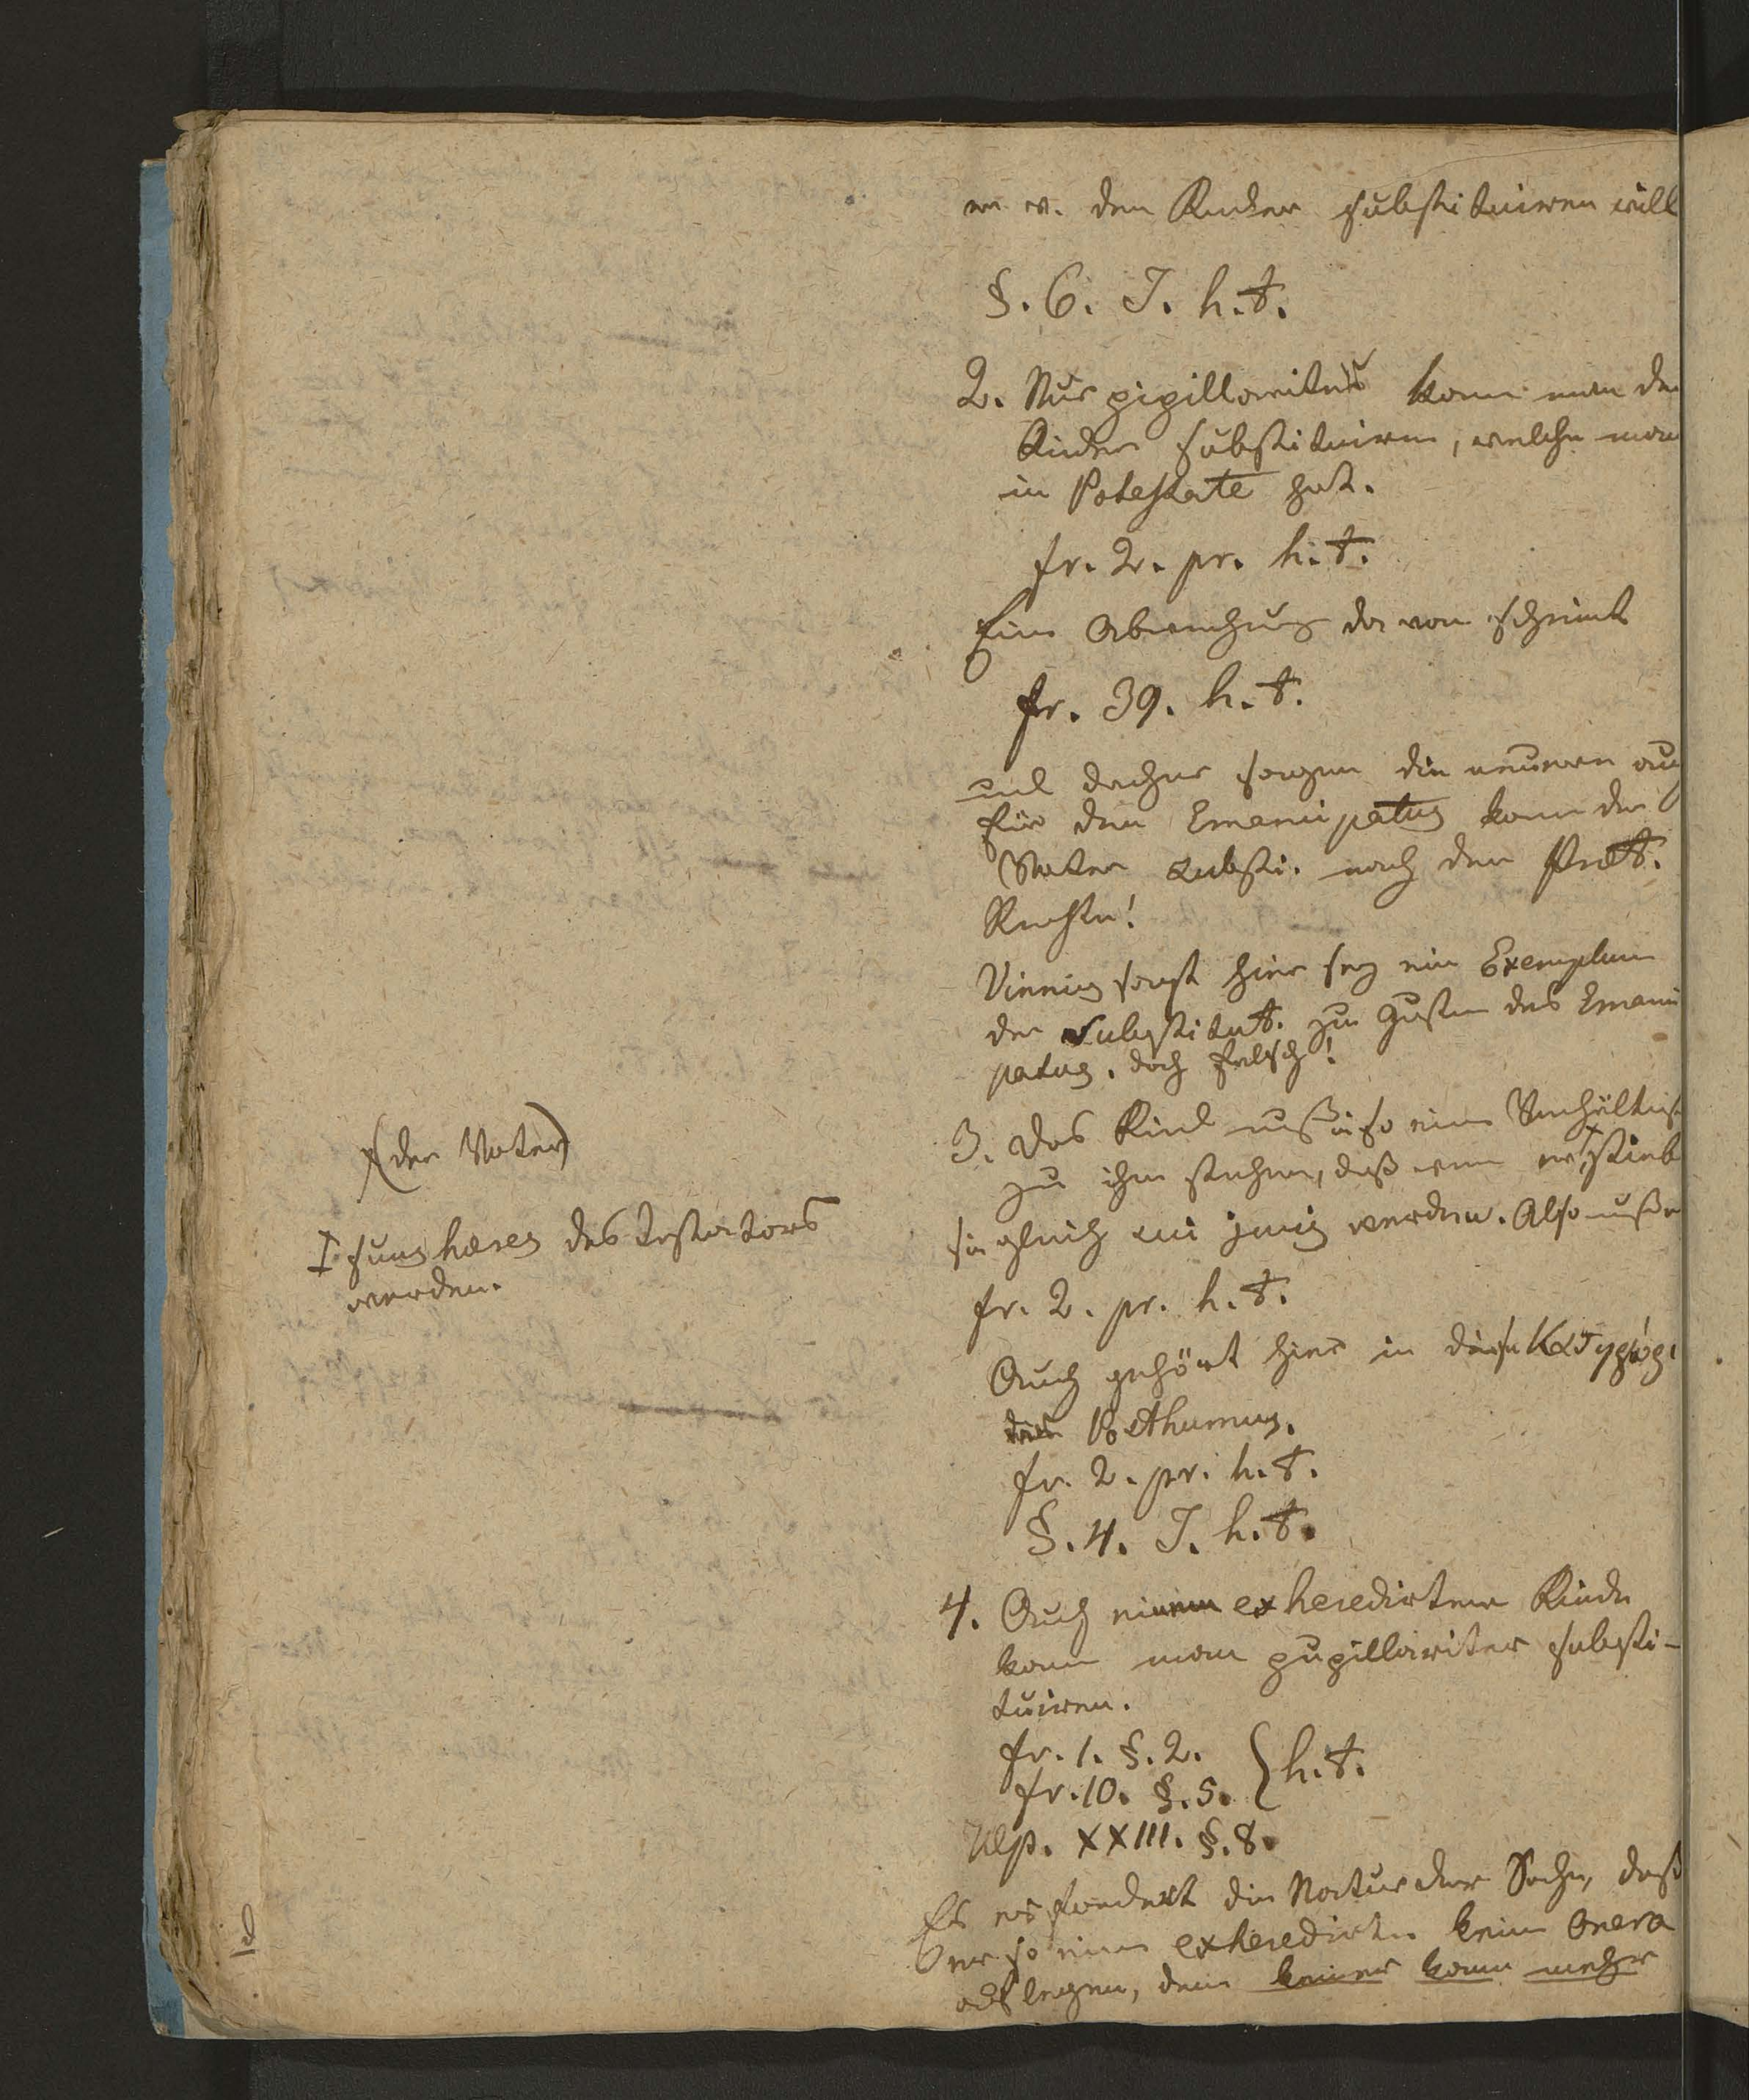 er v. den Kinder substituiren will
§. 6. J. h. t.
2. Nur pupillariter kann man den
Kinder substituiren, welche man
in Potestate hat.
fr. 2. pr. h. t.
Eine Abweichung davon scheint
fr. 39. h. t.
und daher sagen die neueren auch
für den Emancipatus kann der
Vater substi. nach dem Præt.
Rechte!
Vinnius sagt hier sey ein Exemplum
der Substitut. zu Gunsten des Emanci
patus, doch falsch!
3. Das Kind muß in so einem Verhältniß
zu ihm stehen, daß wenn er × stirbt
sie gleich sui juris werden. Also muß er
fr. 2. pr. h. t.
Auch gehört hier in diese
der Posthumus.
fr. 2. pr. h. t.
§. 4. J. h. t.
4. Auch einem exheredirten Kinde
kann man pupillariter substi-
tuiren.
fr. 1. §. 2.
fr. 10. §. 5. } h. t.
Ulp. XXIII. §. 8.
Es erfordert die Natur der Sache, daß
er so einem exheredirten keine Onera
auflegen, denn keiner kann mehr
×(der Vater)
suus hæres des Testators
werden.